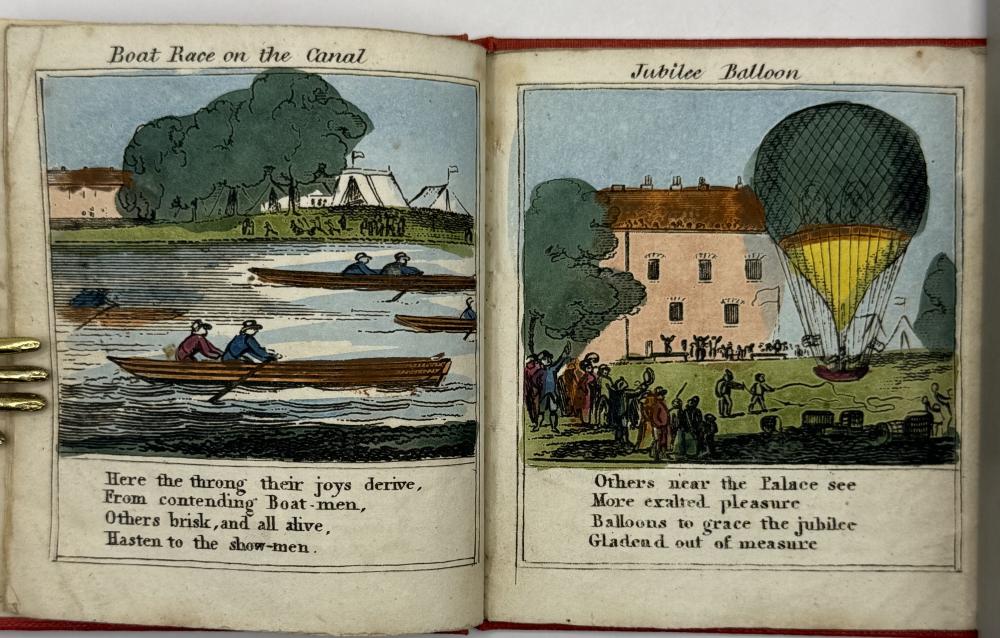 Boat Race on the Canal
Here the throng their joys derive,
From contending Boat-men,
Others brisk, and all alive,
Hasten to the show-men.
Jubilee Balloon
Others near the Palace see
More exalted pleasure
Balloons to grace the jubilee
Gladend out of measure